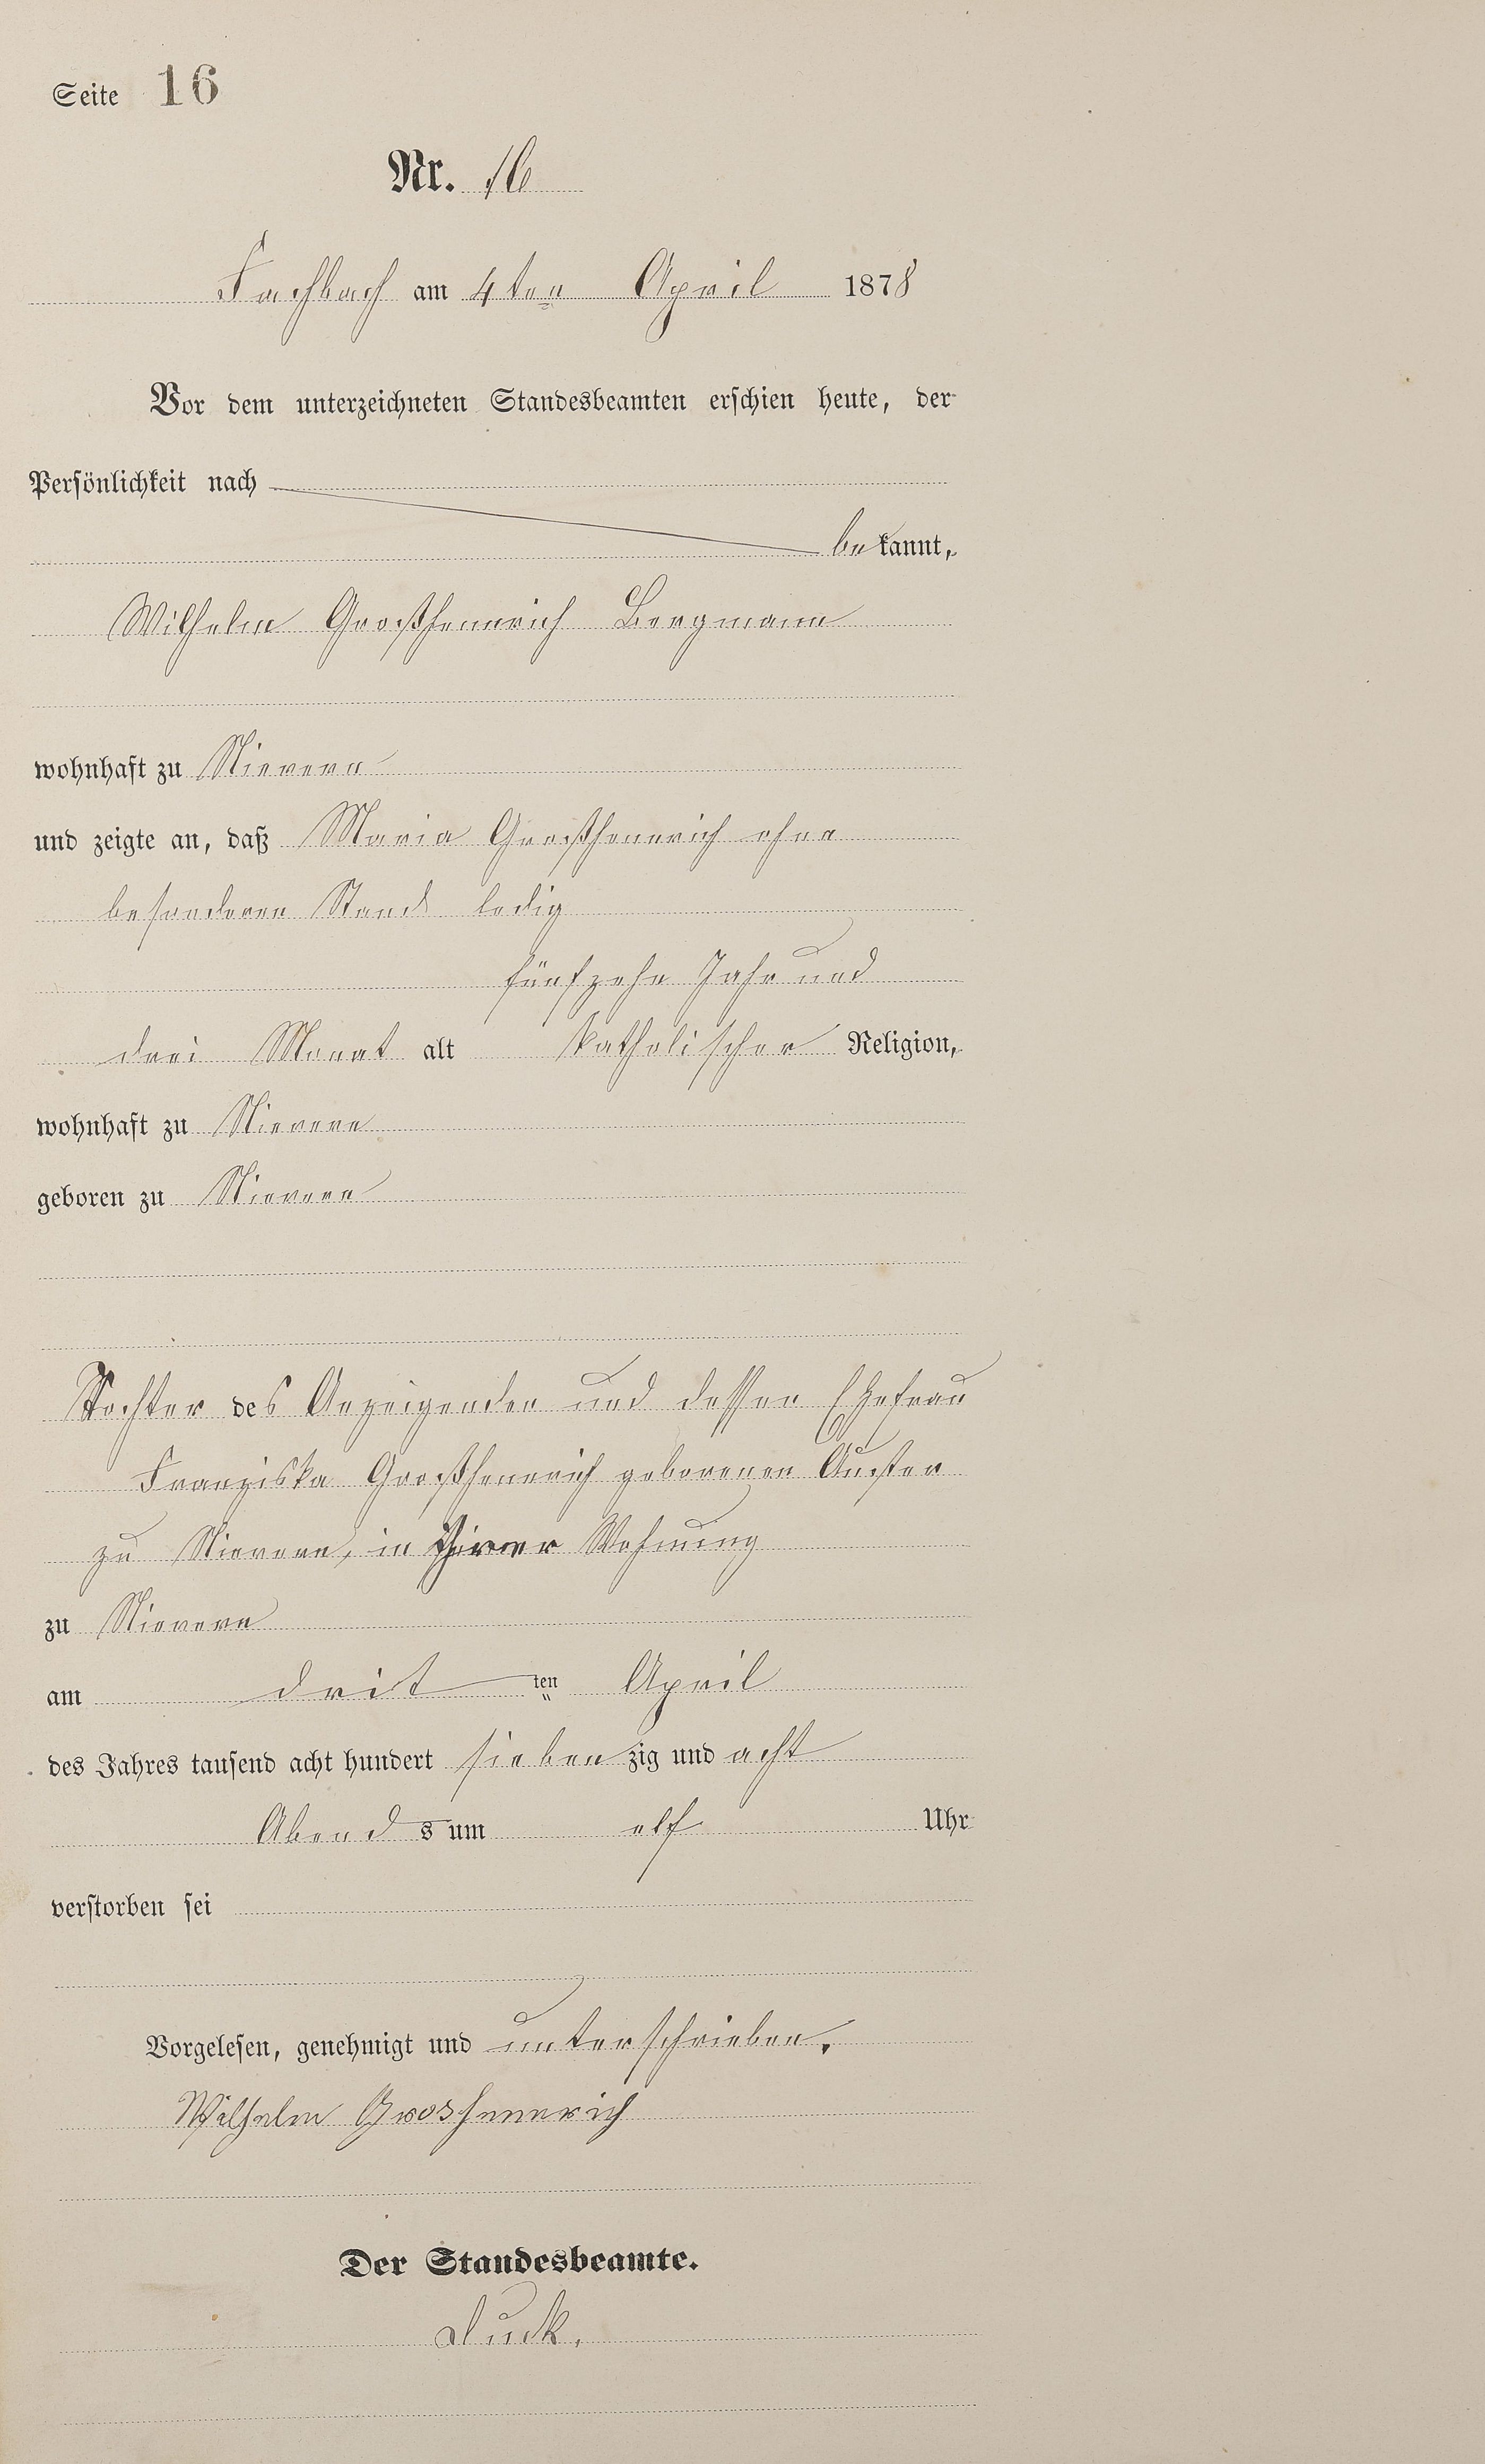 Seite 16
Nr. 16
Fachbach am 4ten April 1878
Vor dem unterzeichneten Standesbeamten erschien heute, der
Persönlichkeit nach
bekannt,
Wilhelm Großhennrich Bergmann
wohnhaft zu Nievern
und zeigte an, daß Maria Großhennrich ohne
besonderen Stand ledig
fünfzehn Jahr und
drei Monat alt katholischer Religion,
wohnhaft zu Nievern
geboren zu Nievern
Tochter des Anzeigenden und dessen Ehefrau
Franziska Großhennrich geborenen
zu Nievern, in Wohnung
zu Nievern
am dritten April
des Jahres tausend acht hundert siebenzig und acht
Abends um elf Uhr
verstorben sei
Vorgelesen, genehmigt und unterschrieben.
Wilhelm Groshennrich
Der Standesbeamte.
Duck.